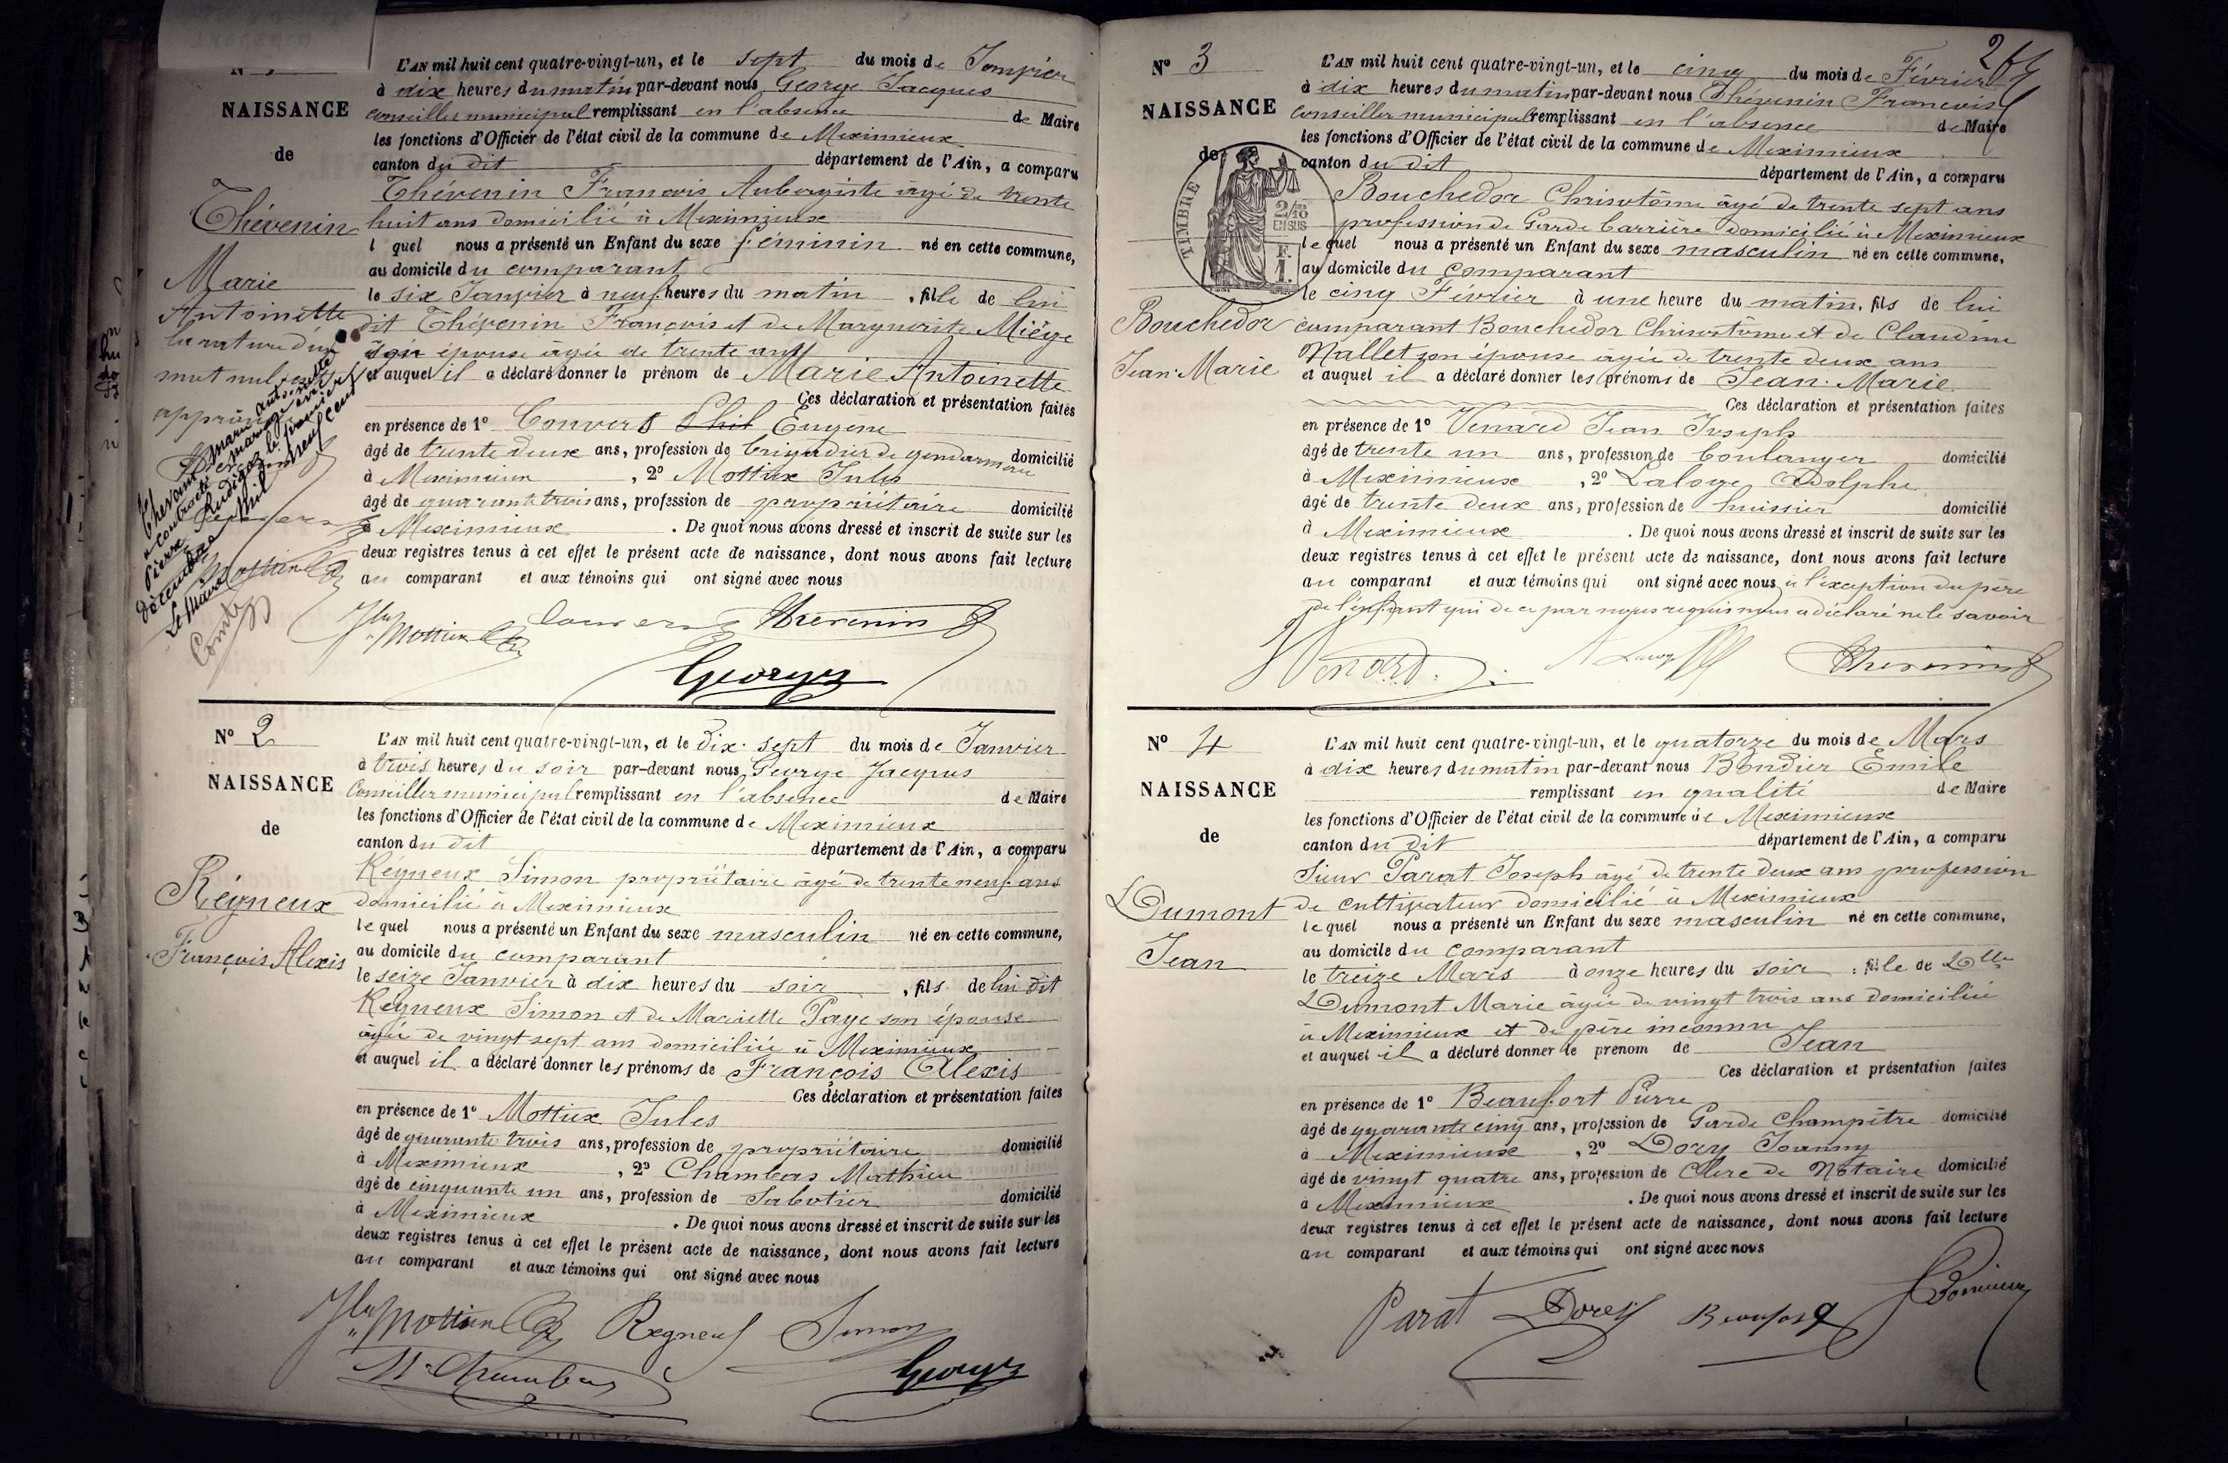 L'AN mil huit cent quatre-vingt-un, et le sept du mois de Janvier
à dix heures du matin par-devant nous George Jacques
Conseiller municipal remplissant en l'absence de Maire
les fonctions d'Officier de l'état civil de la commune de Meximieux
canton du dit département de l'Ain, a comparu
Thévenin François Aubergiste âgé de trente
huit ans domicilié à Meximieux
l quel nous a présenté un Enfant du sexe féminin né en cette commune,
au domicile du comparant
le six Janvier à neuf heures du matin, fille de lui
dit Thévenin François et de Marguerite Miége
son épouse âgée de trente ans
et auquel il a déclaré donner le prénom de Marie Antoinette
Ces déclaration et présentation faites
en présence de 1° Convers Eugene
âgé de trente deux ans, profession de brigadier de gendarmerie domicilié
à Meximieux, 2° Mottux Jules
âgé de quarante trois ans, profession de propriétaire domicilié
à Meximieux. De quoi nous avons dressé et inscrit de suite sur les
deux registres tenus à cet effet le présent acte de naissance, dont nous avons fait lecture
au comparant et aux témoins qui ont signé avec nous
NAISSANCE
de
Thévenin
Marie
Antoinette
Thevenin
Georges
N° 2
NAISSANCE
de
Régneux
François Alexis
L'AN mil huit cent quatre-vingt-un, et le dix-sept du mois de Janvier
à trois heures du soir par-devant nous George Jacques
Conseiller municipal remplissant en l'absence de Maire
les fonctions d'Officier de l'état civil de la commune de Meximieux
canton du dit département de l'Ain, a comparu
Régneux Simon propriétaire âgé de trente neuf ans
domicilié à Meximieux
le quel nous a présenté un Enfant du sexe masculin né en cette commune,
au domicile du comparant
le seize Janvier à dix heures du soir, fils de lui dit
Regneux Simon et de Mariette Page son épouse
âgée de vingt sept ans domiciliée à Meximieux
et auquel il a déclaré donner les prénoms de François Alexis
Ces déclaration et présentation faites
en présence de 1° Mottux Jules
âgé de quarante trois ans, profession de propriétaire domicilié
à Meximieux, 2° Chambas Mathieu
âgé de cinquante un ans, profession de Sabotier domicilié
à Meximieux. De quoi nous avons dressé et inscrit de suite sur les
deux registres tenus à cet effet le présent acte de naissance, dont nous avons fait lecture
au comparant et aux témoins qui ont signé avec nous
Regneux Simon
Georges
N° 3
NAISSANCE
de
TIMBRE
2/10
EN SUS
Bouchedor
Jean-Marie
L'AN mil huit cent quatre-vingt-un, et le cinq du mois de Février
à dix heures du matin par-devant nous Thévenin François
Conseiller municipal remplissant en l'absence de Maire
les fonctions d'Officier de l'état civil de la commune de Meximieux
canton du dit département de l'Ain, a comparu
Bouchedor Chrisostôme âgé de trente sept ans
profession de Garde barrière domicilié à Meximieux
le quel nous a présenté un Enfant du sexe masculin né en cette commune,
au domicile du comparant
le cinq Février à une heure du matin, fils de lui
comparant Bouchedor Chrisostôme et de Claudine
Mallet son épouse âgée de trente deux ans
et auquel il a déclaré donner les prénoms de Jean-Marie
Ces déclaration et présentation faites
en présence de 1° Venard Jean Joseph
âgé de trente un ans, profession de boulanger domicilié
à Meximieux, 2° Laloge Adolphe
âgé de trente deux ans, profession de huissier domicilié
à Meximieux. De quoi nous avons dressé et inscrit de suite sur les
deux registres tenus à cet effet le présent acte de naissance, dont nous avons fait lecture
au comparant et aux témoins qui ont signé avec nous à l'exception du père
de l'enfant qui de ce par nous requis nous a déclaré ne le savoir
Venard
Thevenin
N° 4
NAISSANCE
de
Dumont
Jean
L'AN mil huit cent quatre-vingt-un, et le quatorze du mois de Mars
à dix heures du matin par-devant nous Bondier Emile
remplissant en qualité de Maire
les fonctions d'Officier de l'état civil de la commune de Meximieux
canton du dit département de l'Ain, a comparu
Sieur Parat Joseph âgé de trente deux ans profession
de cultivateur domicilié à Meximieux
le quel nous a présenté un Enfant du sexe masculin né en cette commune,
au domicile du comparant
le treize Mars à onze heures du soir, file de Dlle
Dumont Marie âgée de vingt trois ans domiciliée
à Meximieux et de père inconnu
et auquel il a déclaré donner le prénom de Jean
Ces déclaration et présentation faites
en présence de 1° Beaufort Pierre
âgé de quarante cinq ans, profession de Garde Champêtre domicilié
à Meximieux, 2° Dorey Joanny
âgé de vingt quatre ans, profession de Clerc de Notaire domicilié
à Meximieux. De quoi nous avons dressé et inscrit de suite sur les
deux registres tenus à cet effet le présent acte de naissance, dont nous avons fait lecture
au comparant et aux témoins qui ont signé avec nous
Parat Dorey Beaufort